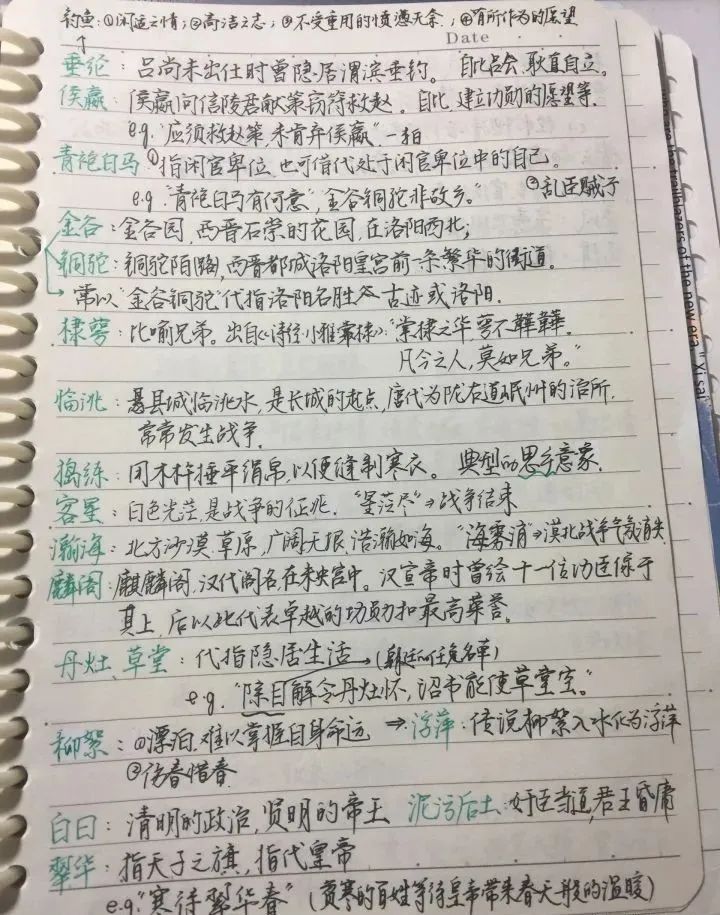 钓鱼:①闲适之情;②高洁之志;③不受重用的愤懑无奈;④有所作为的愿望
Date
垂纶:吕尚未出仕时曾隐居渭滨垂钓。自比吕尚,耿直自立。
侯嬴:侯嬴向信陵君献策窃符救赵。自比,建立功勋的愿望等.
e.g."应须救赵策,未肯弃侯嬴"一拍
青袍白马①指闲官卑位,也可借代处于闲官卑位中的自己。
e.g."青袍白马有何意,金谷铜驼非故乡。" ②乱臣贼子
金谷:金谷园,西晋石崇的花园,在洛阳西北;
铜驼:铜驼陌路,西晋都城洛阳皇宫前一条繁华的街道。
→常以"金谷铜驼"代指洛阳名胜古迹或洛阳.
棣萼:比喻兄弟。出自《诗经·小雅·常棣》:"常棣之华,萼不韡韡.
凡今之人,莫如兄弟。"
临洮:县城临洮水,是长城的起点,唐代为陇右道岷州的治所.
常常发生战争.
捣练:用木杵捶平绢帛,以便缝制寒衣。典型的思乡意象.
客星:白色光芒,是战争的征兆."星芒尽"→战争结束
瀚海:北方沙漠、草原,广阔无垠,浩瀚如海。"海雾消"→漠北战争气氛消失
麟阁:麒麟阁,汉代阁名,在未央宫中。汉宣帝时曾绘十一位功臣像于
其上,后以此代表卓越的功勋和最高荣誉。
丹灶、草堂:代指隐居生活→(朝廷任免名单)
e.g."除目解令丹灶怀,诏书能使草堂空。"
柳絮:①漂泊,难以掌握自身命运→浮萍:传说柳絮入水化为浮萍
②伤春惜春
白日:清明的政治,贤明的帝王 泥污后土:奸臣当道,君王昏庸
翠华:指天子之旗,指代皇帝
e.g."寒待翠华春"(贫寒的百姓等待皇帝带来春天般的温暖)
the trailblazers of the new era." Xi sai